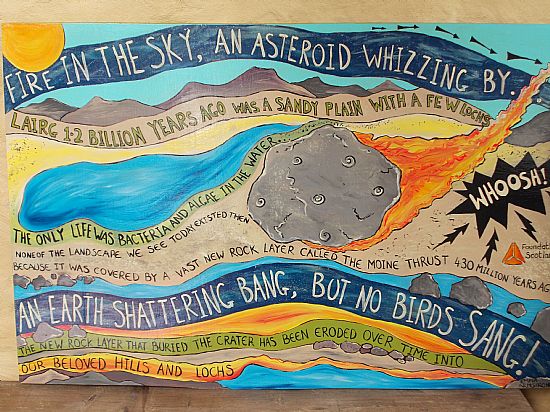 FIRE IN THE SKY, AN ASTEROID WHIZZING BY.
LAIRG 1·2 BILLION YEARS AGO WAS A SANDY PLAIN WITH A FEW LOCHS
THE ONLY LIFE WAS BACTERIA AND ALGAE IN THE WATER
WHOOSH!
NONE OF THE LANDSCAPE WE SEE TODAY EXISTED THEN
BECAUSE IT WAS COVERED BY A VAST NEW ROCK LAYER CALLED THE MOINE THRUST 430 MILLION YEARS AGO
Foundation
Scotland
AN EARTH SHATTERING BANG, BUT NO BIRDS SANG!
THE NEW ROCK LAYER THAT BURIED THE CRATER HAS BEEN ERODED OVER TIME INTO
OUR BELOVED HILLS AND LOCHS